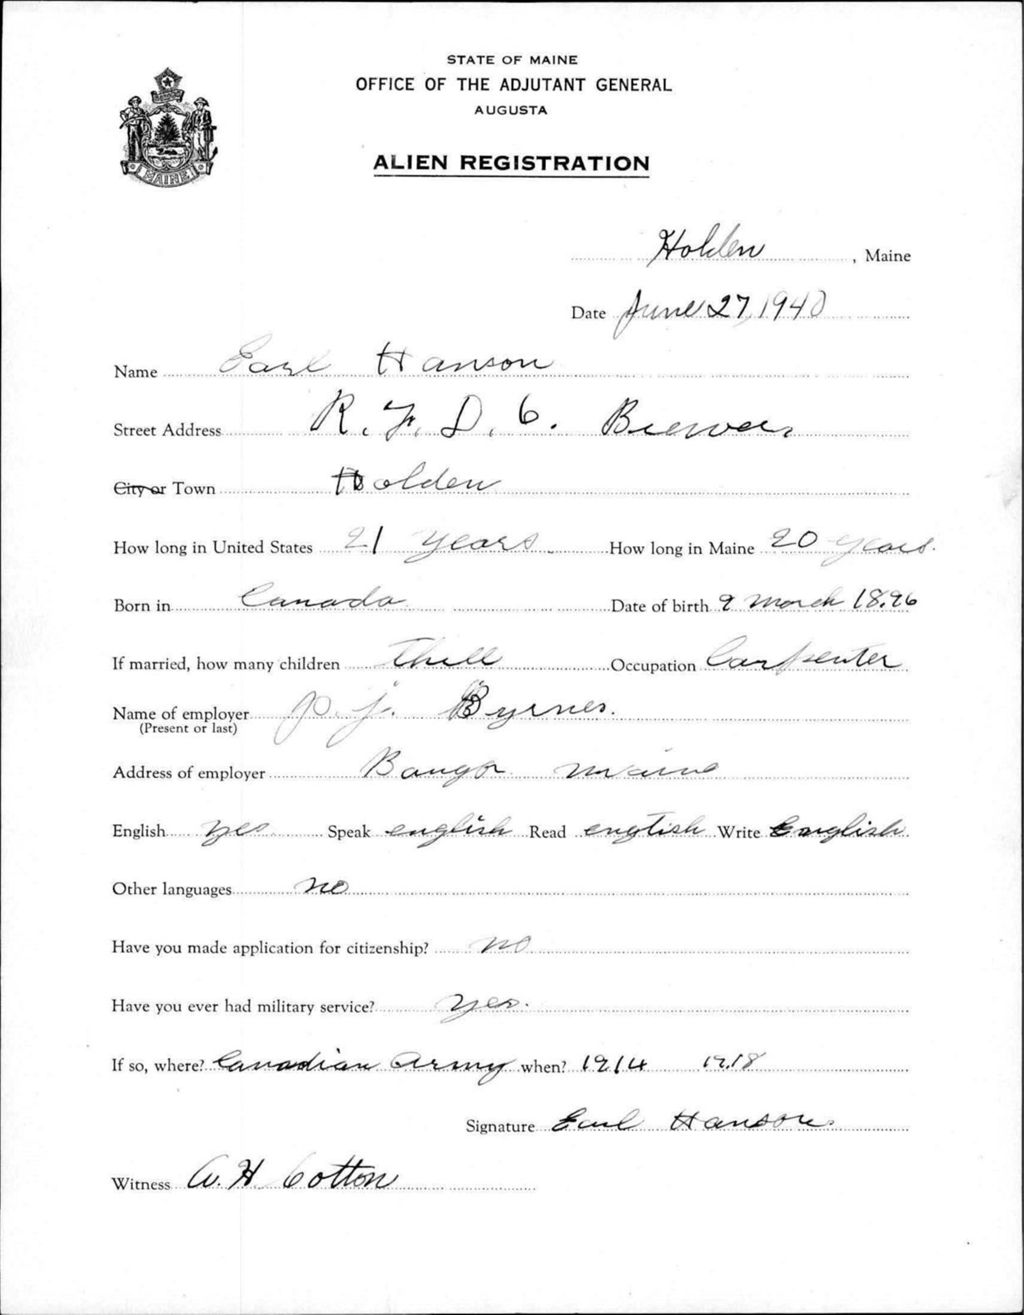 STATE OF MAINE
OFFICE OF THE ADJUTANT GENERAL
AUGUSTA
ALIEN REGISTRATION
MAINE
Holden, Maine
Date June 27, 1940
Name Earl Hanson
Street Address R. F. D. 6. Brewer,
City or Town Holden
How long in United States 21 years How long in Maine 20 years.
Born in Canada Date of birth 9 March 1896
If married, how many children three Occupation Carpenter
Name of employer P. J. Byrnes.
(Present or last)
Address of employer Bangor Maine
English yes Speak english Read english Write English
Other languages no
Have you made application for citizenship? no
Have you ever had military service? yes.
If so, where? Canadian Army when? 1914 1918
Signature Earl Hanson.
Witness A. H. Cotton